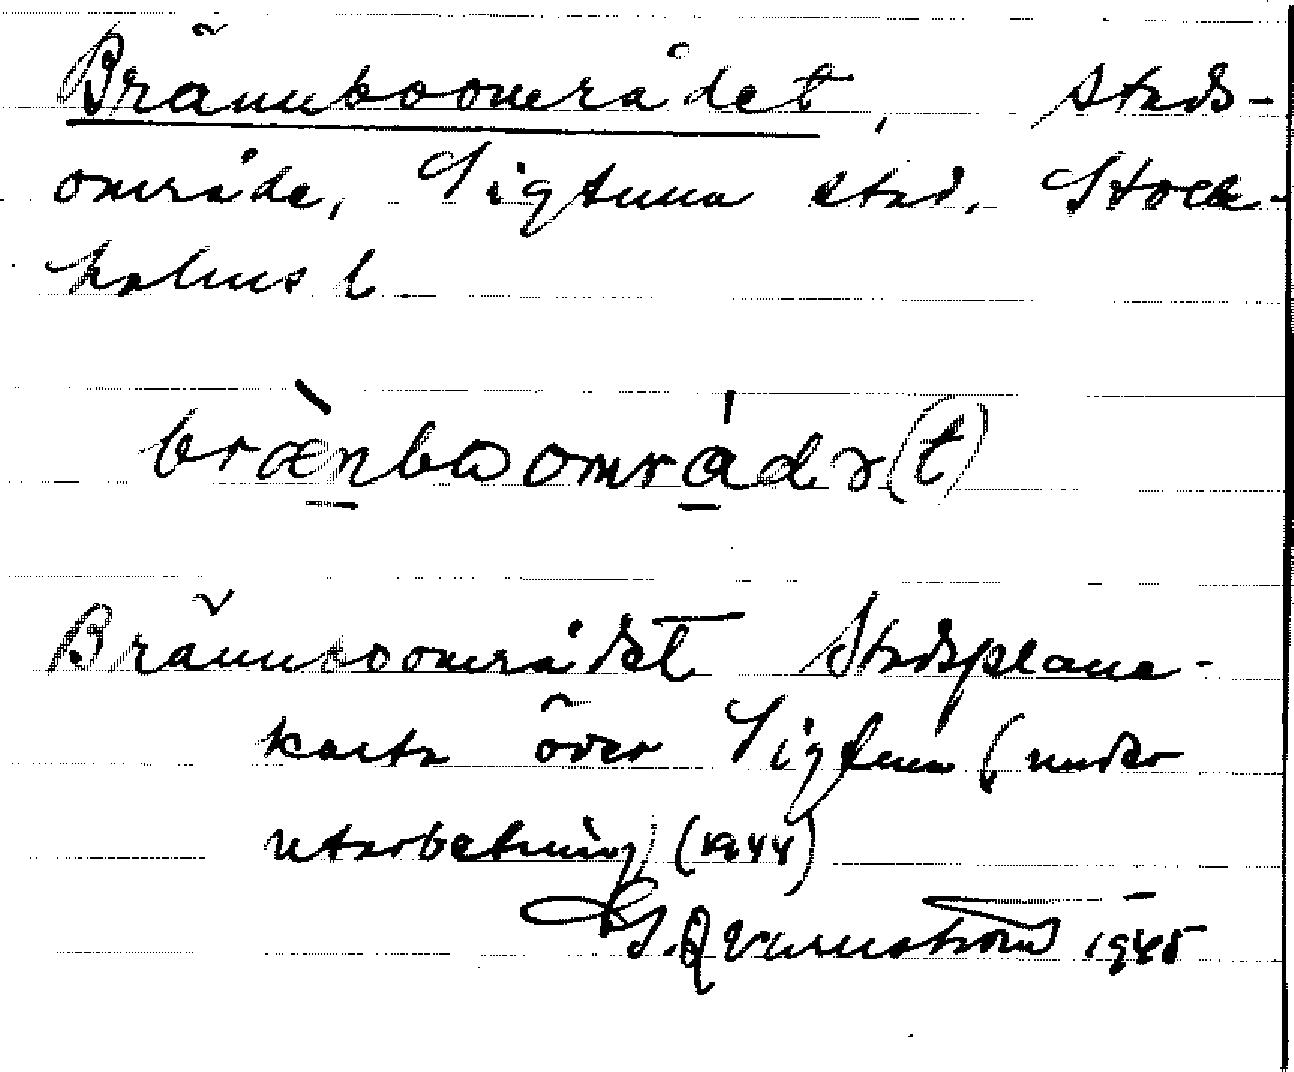 Brännboområdet, stads-
område, Sigtuna stad, Stock-
holms l.
brænboområdə(t)
Brännboområdet Stadsplane-
karta över Sigtuna (under
utarbetning) (1944)
G. Qvarnström 1945